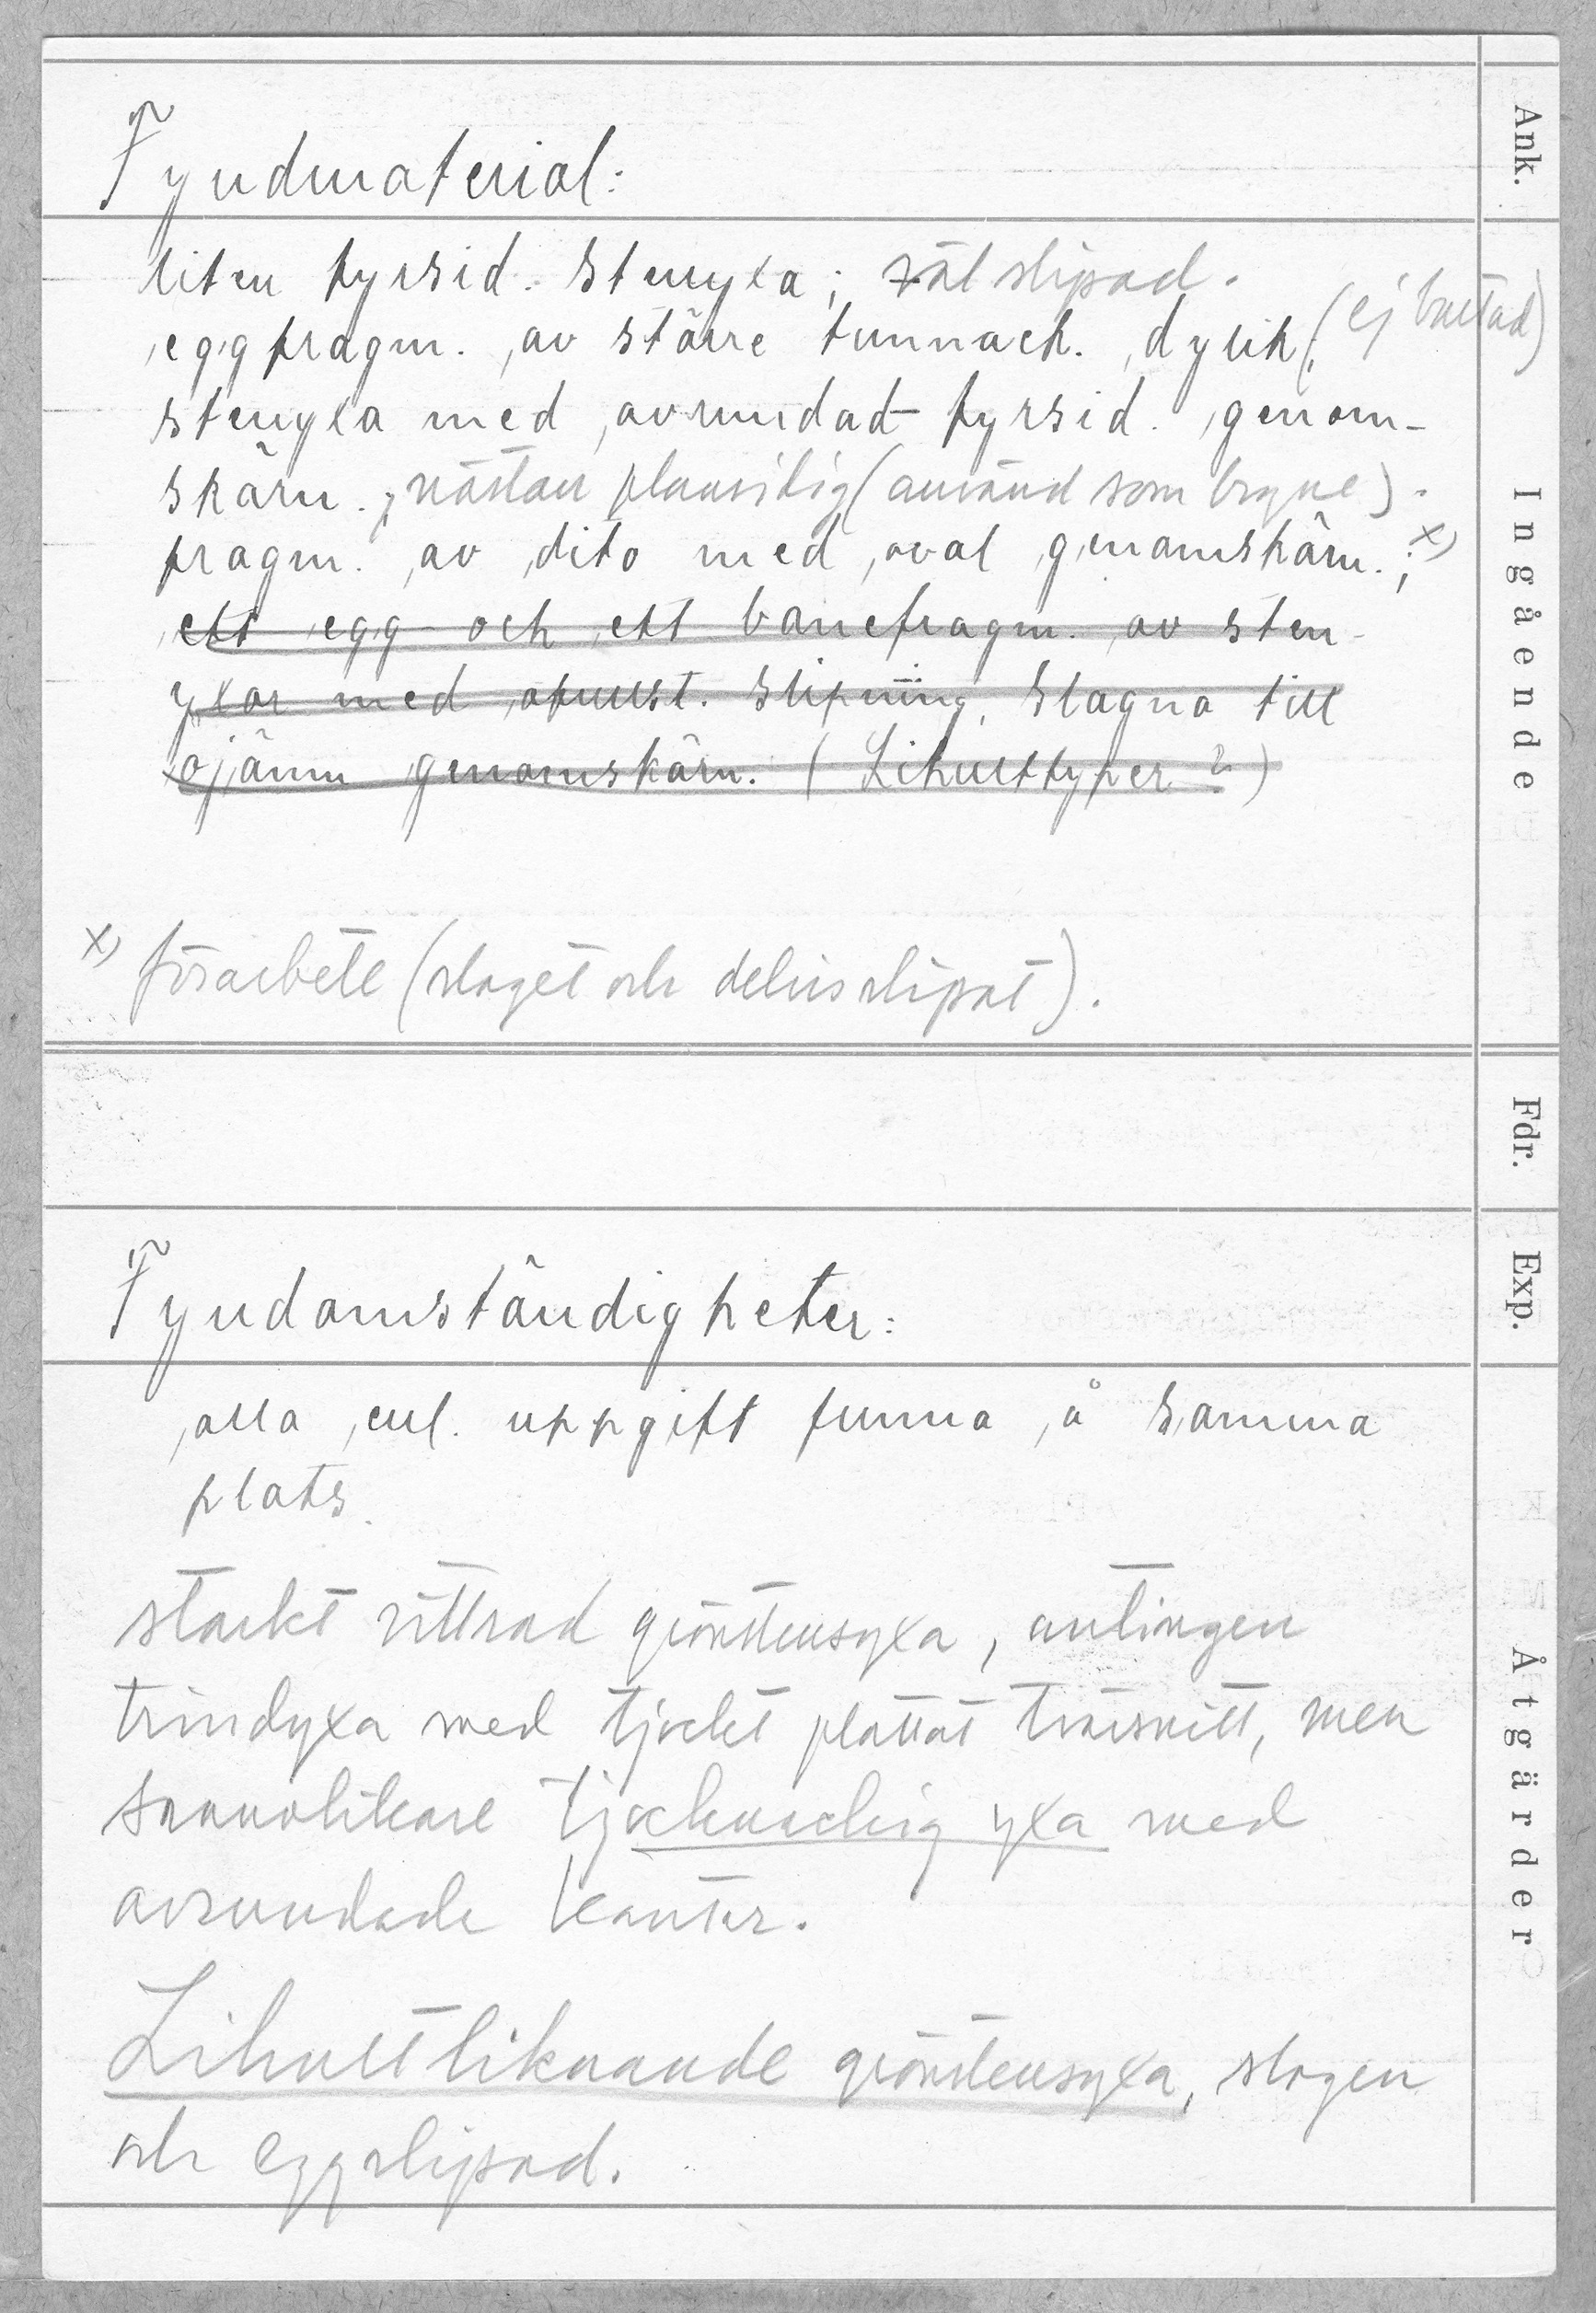 Fyndmaterial:
liten fyrsid. stenyxa; väl slipad.
eggfragm. av större tunnack. dylik; (ej bultad)
stenyxa med avrundad fyrsid. genom-
skärn.; nästan plansidig (använd som bryne).
fragm. av dito med oval genomskärn.; x)
ett egg och ett banefragm. av sten-
yxor med ofullst. slipning, slagna till
ojämn genomskärn. (Lihulttyper?)
x) förarbete (slaget och delvis slipat).
Fyndomständigheter:
alla enl. uppgift funna å samma
plats.
starkt vittrad grönstensyxa, antingen
trindyxa med tjockt plattat tvärsnitt, men
sannolikare tjocknackig yxa med
avrundade kanter.
Lihultliknande grönstensyxa, slagen
och eggslipad.
Ank.
Ingående
Fdr.
Exp.
Åtgärder